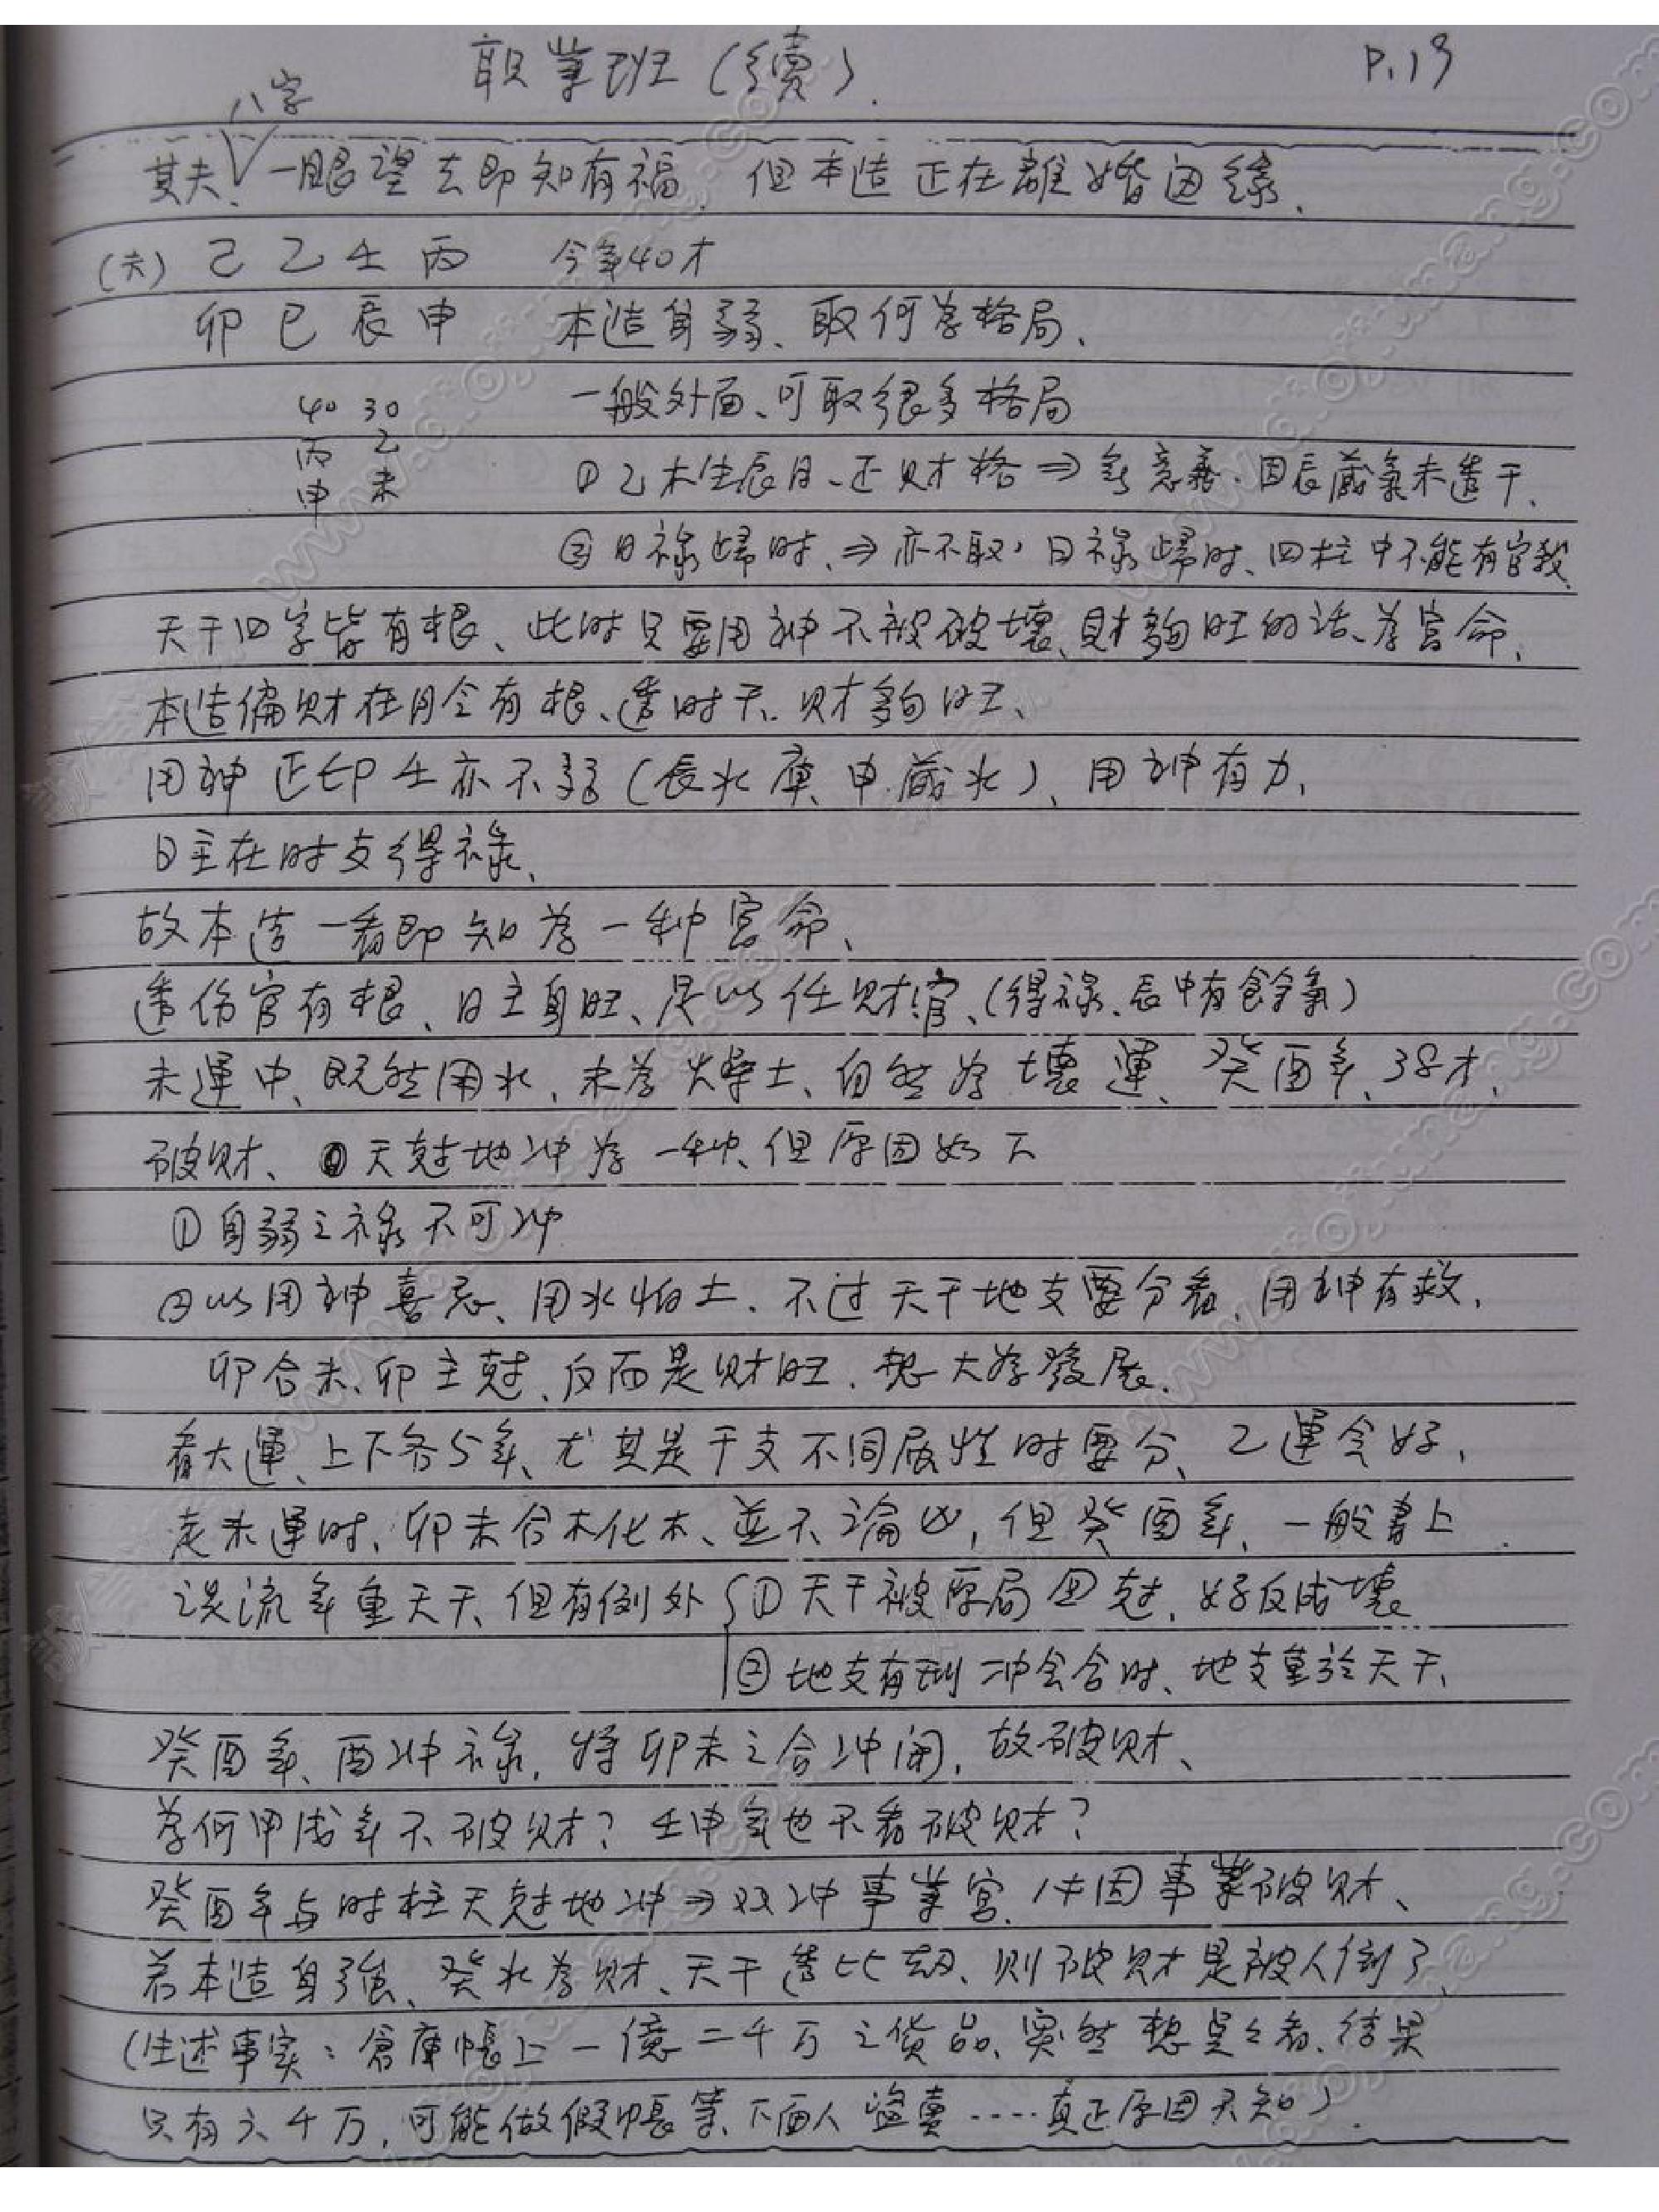 职業班(續). P.19
八字
其夫、一眼望去即知有福. 但本造正在離婚边緣.
(夫) 己乙壬丙 今年40才
卯巳辰申 本造身弱、取何為格局.
一般外面、可取很多格局
40 30
丙 乙
申 未
① 乙木生辰月、正财格⇒無意義. 因辰藏氣未透干.
② 日祿歸时、⇒亦不取, 日祿歸时、四柱中不能有官殺.
天干四字皆有根、此时只要用神不被破壞、财夠旺的话、為富命.
本造偏财在月令有根、透时干. 财夠旺、
用神正印壬亦不弱(辰水庫、申藏水)、用神有力.
日主在时支得祿、
故本造一看即知為一种富命、
透伤官有根、日主身旺、足以任财官、(得祿、辰中有餘氣)
未運中、既然用水、未為燥土、自然為壞運、癸酉年、38才、
破财、天尅地冲為一种、但原因如下
① 自弱之祿不可冲
② 以用神喜忌、用水怕土. 不过天干地支要分看, 用神有救.
卯合未、卯主尅、反而是财旺. 想大為發展.
看大運、上下各5年、尤其是干支不同屬性时要分、乙運会好.
走未運时、卯未合木化木、並不論凶, 但癸酉年、一般書上
说流年重天干、但有例外 ① 天干被原局回尅, 好反成壞
② 地支有刑冲会合时、地支重於天干.
癸酉年、酉冲祿, 將卯未之合冲開, 故破财、
為何甲戌年不破财? 壬申年也不看破财?
癸酉年与时柱天尅地冲⇒双冲事業宮. 必因事業破财、
若本造身強、癸水為财、天干透比劫、则破财是被人倒了.
(生述事実: 倉庫帳上一億二千万之貨品、突然想点々看、结果
只有六千万, 可能做假帳等、下面人盜賣……真正原因不知).